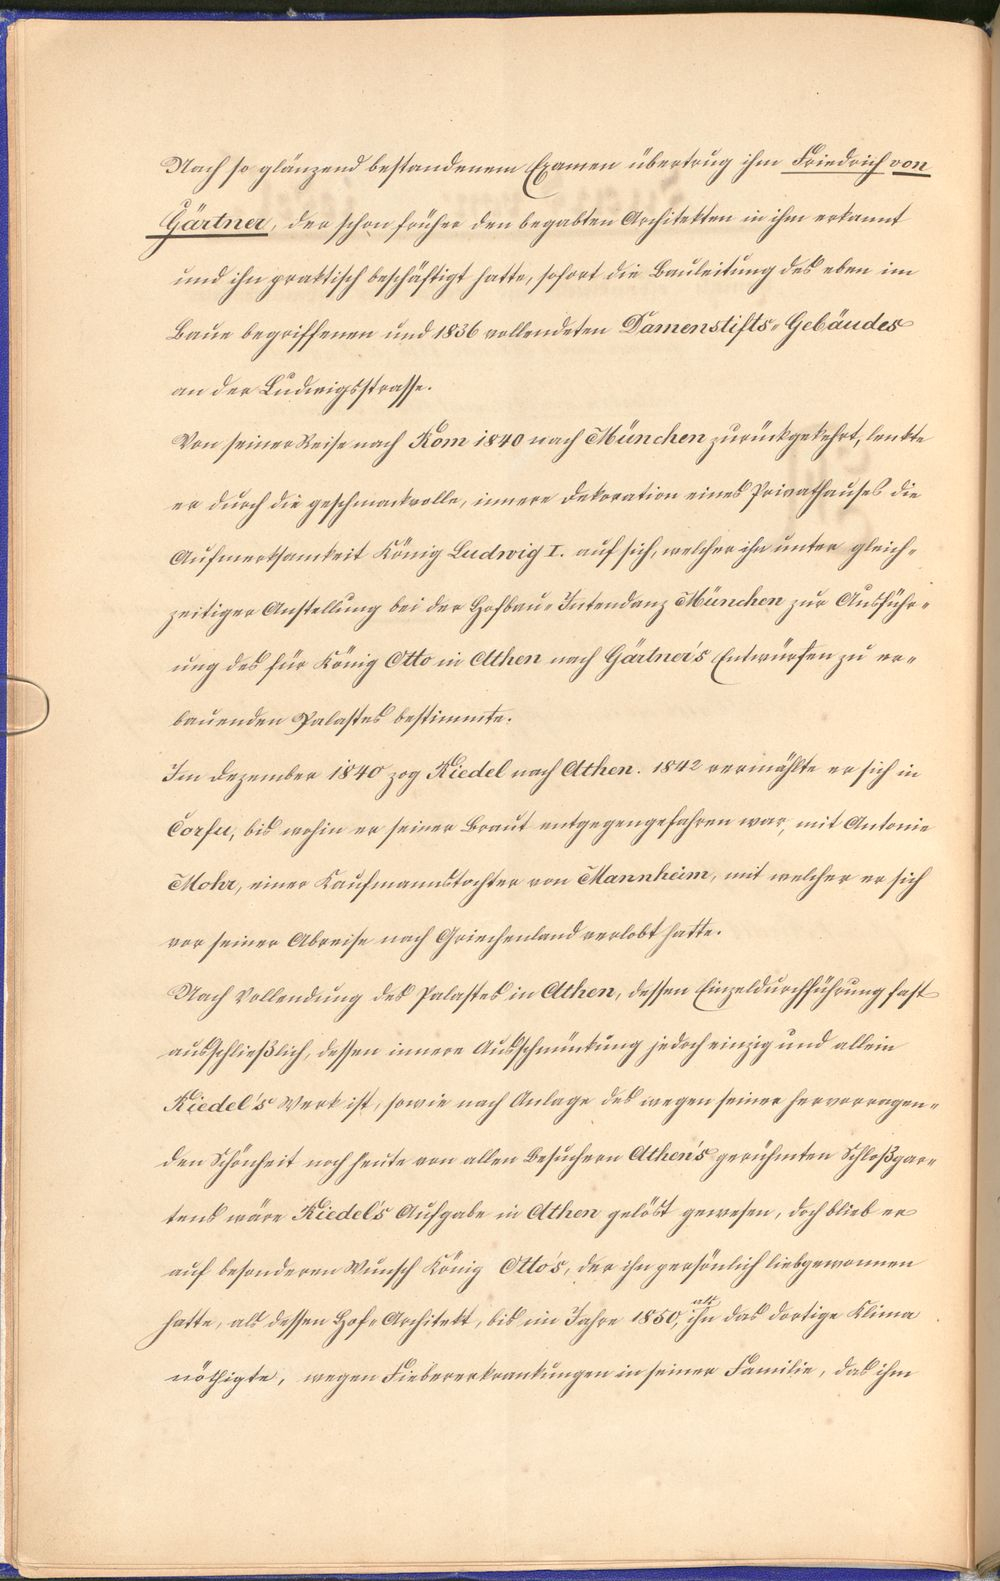 Nach so glänzend bestandenem Examen übertrug ihm Friedrich von
Gärtner, der schon früher den begabten Architekten in ihm erkannt
und ihn praktisch beschäftigt hatte, sofort die Bauleitung des eben im
Baue begriffenen und 1836 vollendeten Damenstifts-Gebäudes
an der Ludwigsstrasse.
Von seiner Reise nach Rom 1840 nach München zurückgekehrt, lenkte
er durch die geschmackvolle, innere Dekoration eines Privathauses die
Aufmerksamkeit König Ludwig I. auf sich, welcher ihn unter gleich-
zeitiger Anstellung bei der Hofbau-Intendanz München zur Ausführ-
ung des für König Otto in Athen nach Gärtner's Entwürfen zu er-
bauenden Palastes bestimmte.
Im Dezember 1840 zog Riedel nach Athen. 1842 vermählte er sich in
Corfu, bis wohin er seiner Braut entgegengefahren war, mit Antonie
Mohr, einer Kaufmannstochter von Mannheim, mit welcher er sich
vor seiner Abreise nach Griechenland verlobt hatte.
Nach Vollendung des Palastes in Athen, dessen Einzeldurchführung fast
ausschließlich, dessen innere Ausschmückung jedoch einzig und allein
Riedel's Werk ist, sowie nach Anlage des wegen seiner hervorragen-
den Schönheit noch heute von allen Besuchern Athen's gerühmten Schloßgar-
tens wäre Riedel's Aufgabe in Athen gelöst gewesen, doch blieb er
auf besonderen Wunsch König Otto's, der ihn persönlich liebgewonnen
hatte, als dessen Hof-Architekt, bis im Jahre 1850, als ihn das dortige Klima
nöthigte, wegen Fiebererkrankungen in seiner Familie, das ihm